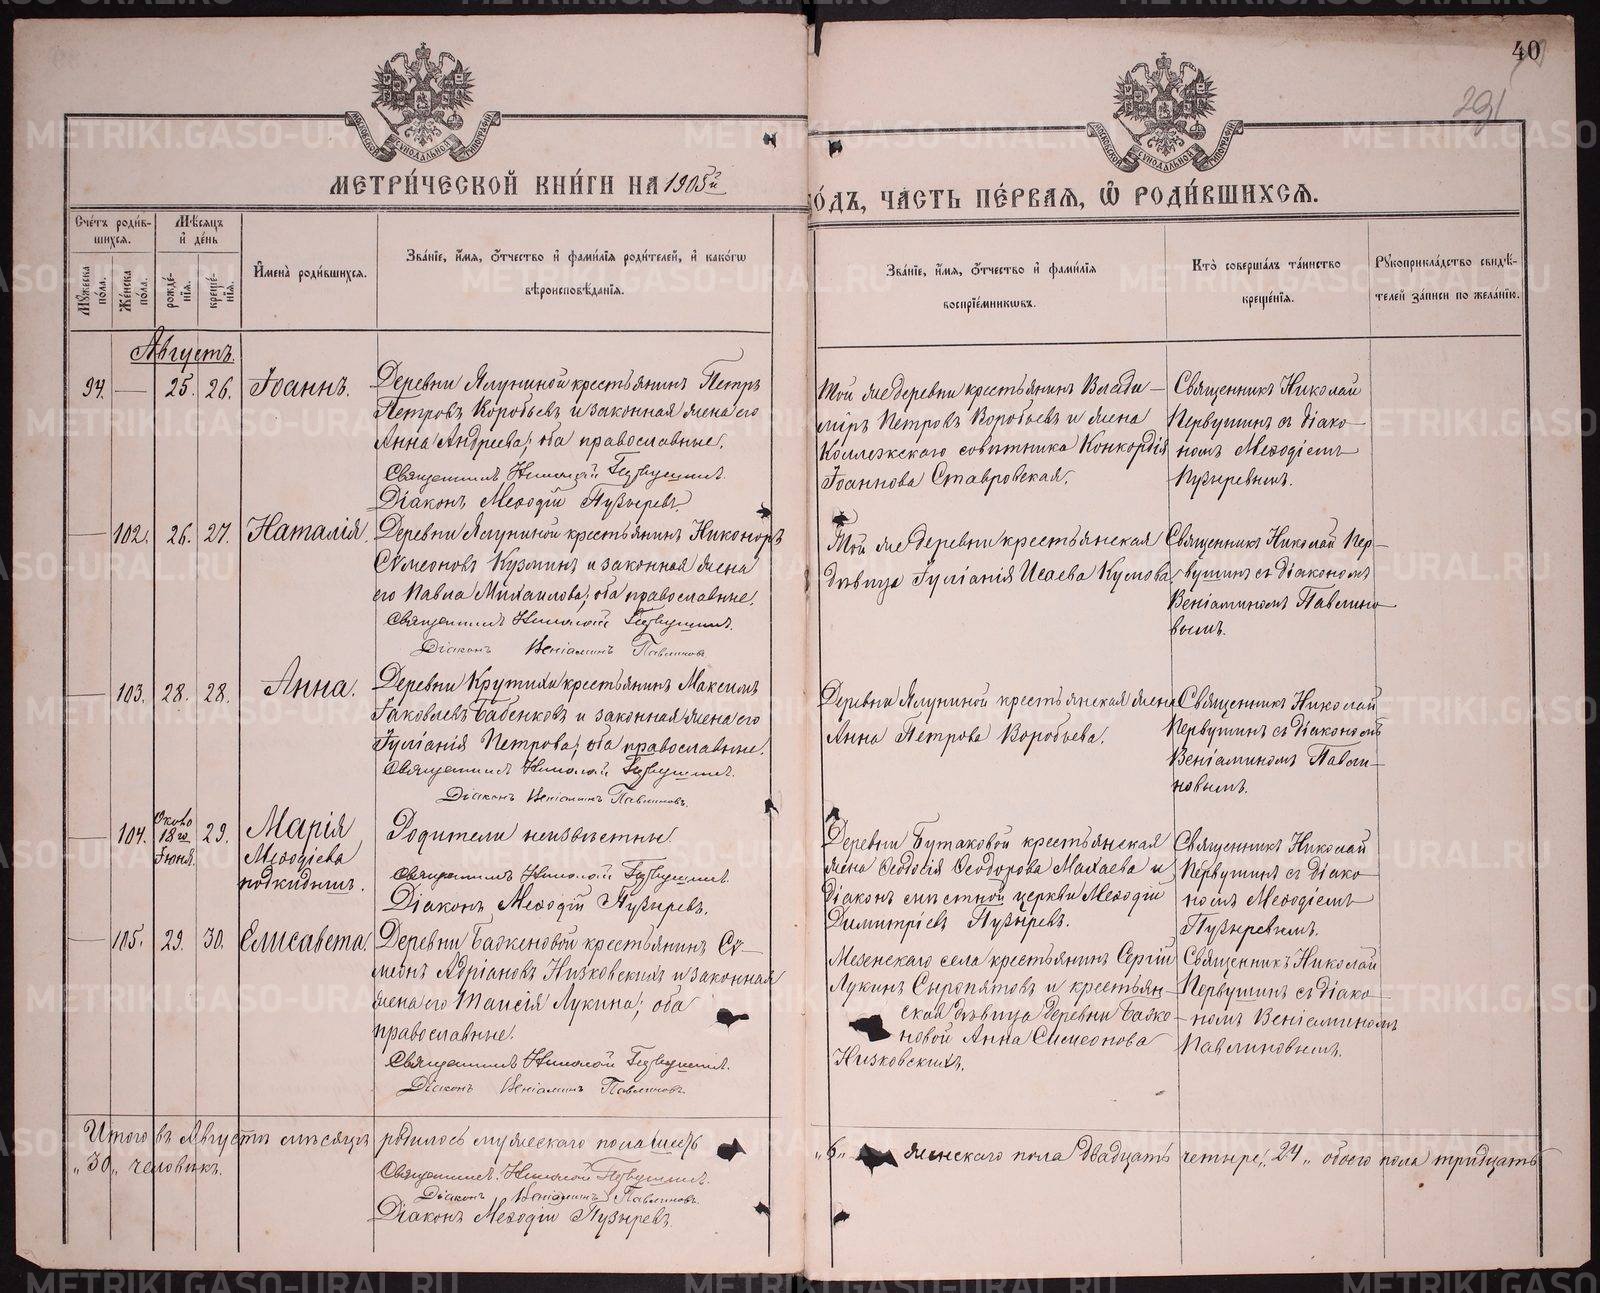 40
291
МОСКОВСКОЙ СѴНОДАЛЬНОЙ ТИПОГРАФІИ
МОСКОВСКОЙ СѴНОДАЛЬНОЙ ТИПОГРАФІИ
МЕТРИ́ЧЕСКОЙ КНИ́ГИ НА 1905й
О́ДЪ, ЧА́СТЬ ПЕ́РВАЯ, Ѡ҆ РОДИ́ВШИХСЯ.
Сче́тъ роди́вшихся.
Мѣ́сяцъ и҆ де́нь
Мꙋ́жеска по́ла.
Же́нска по́ла.
рожде́нїѧ.
креще́нїѧ.
И҆мена̀ роди́вшихся.
Зва́нїе, и҆́мѧ, ѻ҆́тчество и҆ фамилїѧ роди́телей, и҆ како́гѡ
вѣроисповѣ́данїѧ.
Зва́нїе, и҆́мѧ, ѻ҆́тчество и҆ фами́лїѧ
воспрїе́мникѡвъ.
Кто̀ соверша́лъ та́инство
креще́нїѧ.
Рꙋкоприкла́дство свидѣ́телей за́писи по жела́нїю.
Августъ.
94. — 25. 26. Іоаннъ.
Деревни Ялуниной крестьянинъ Петръ
Петровъ Воробьевъ и законная жена его
Анна Андреева; оба православные.
Священникъ Николай Первушинъ.
Діаконъ Меѳодій Пузыревъ.
Той же деревни крестьянинъ Влади-
міръ Петровъ Воробьевъ и жена
Коллежскаго совѣтника Конкордія
Іоаннова Ставровская.
Священникъ Николай
Первушинъ съ діако-
номъ Меѳодіемъ
Пузыревымъ.
— 102. 26. 27. Наталія.
Деревни Ялуниной крестьянинъ Никоноръ
Сѵмеоновъ Кузминъ и законная жена
его Павла Михаилова; оба православные.
Священникъ Николай Первушинъ.
Діаконъ Веніаминъ Павлиновъ.
Той же деревни крестьянская
дѣвица Іуліанія Исаева Кумова.
Священникъ Николай Пер-
вушинъ съ діакономъ
Веніаминомъ Павлино-
вымъ.
— 103. 28. 28. Анна.
Деревни Крутихи крестьянинъ Максимъ
Іаковлевъ Бабенковъ и законная жена его
Іуліанія Петрова; оба православные.
Священникъ Николай Первушинъ.
Діаконъ Веніаминъ Павлиновъ.
Деревни Ялуниной крестьянская жена
Анна Петрова Воробьева.
Священникъ Николай
Первушинъ съ діакономъ
Веніаминомъ Павли-
новымъ.
— 104. Около 18го Іюня. 29. Марія
Меѳодіева
подкидышъ.
Родители неизвѣстны.
Священникъ Николай Первушинъ.
Діаконъ Меѳодій Пузыревъ.
Деревни Бутаковой крестьянская
жена Ѳеодосія Ѳеодорова Махаева и
Діаконъ мѣстной церкви Меѳодій
Димитріевъ Пузыревъ.
Священникъ Николай
Первушинъ съ діако-
номъ Меѳодіемъ
Пузыревымъ.
— 105. 29. 30. Елисавета.
Деревни Баженовой крестьянинъ Сѵ-
меонъ Адріановъ Низковскихъ и законная
жена его Таисія Лукина; оба
православные.
Священникъ Николай Первушинъ.
Діаконъ Веніаминъ Павлиновъ.
Мезенскаго села крестьянинъ Сергій
Лукинъ Сыропятовъ и крестьян-
ская дѣвица деревни Баже-
новой Анна Симеонова
Низковскихъ.
Священникъ Николай
Первушинъ съ діако-
номъ Веніаминомъ
Павлиновымъ.
Итого въ Августѣ мѣсяцѣ родилось мужескаго пола шесть „6„ женскаго пола двадцать четыре „24„ обоего пола тридцать
„30„ человѣкъ.
Священникъ Николай Первушинъ.
Діаконъ Веніаминъ Павлиновъ.
Діаконъ Меѳодій Пузыревъ.
METRIKI.GASO-URAL.RU